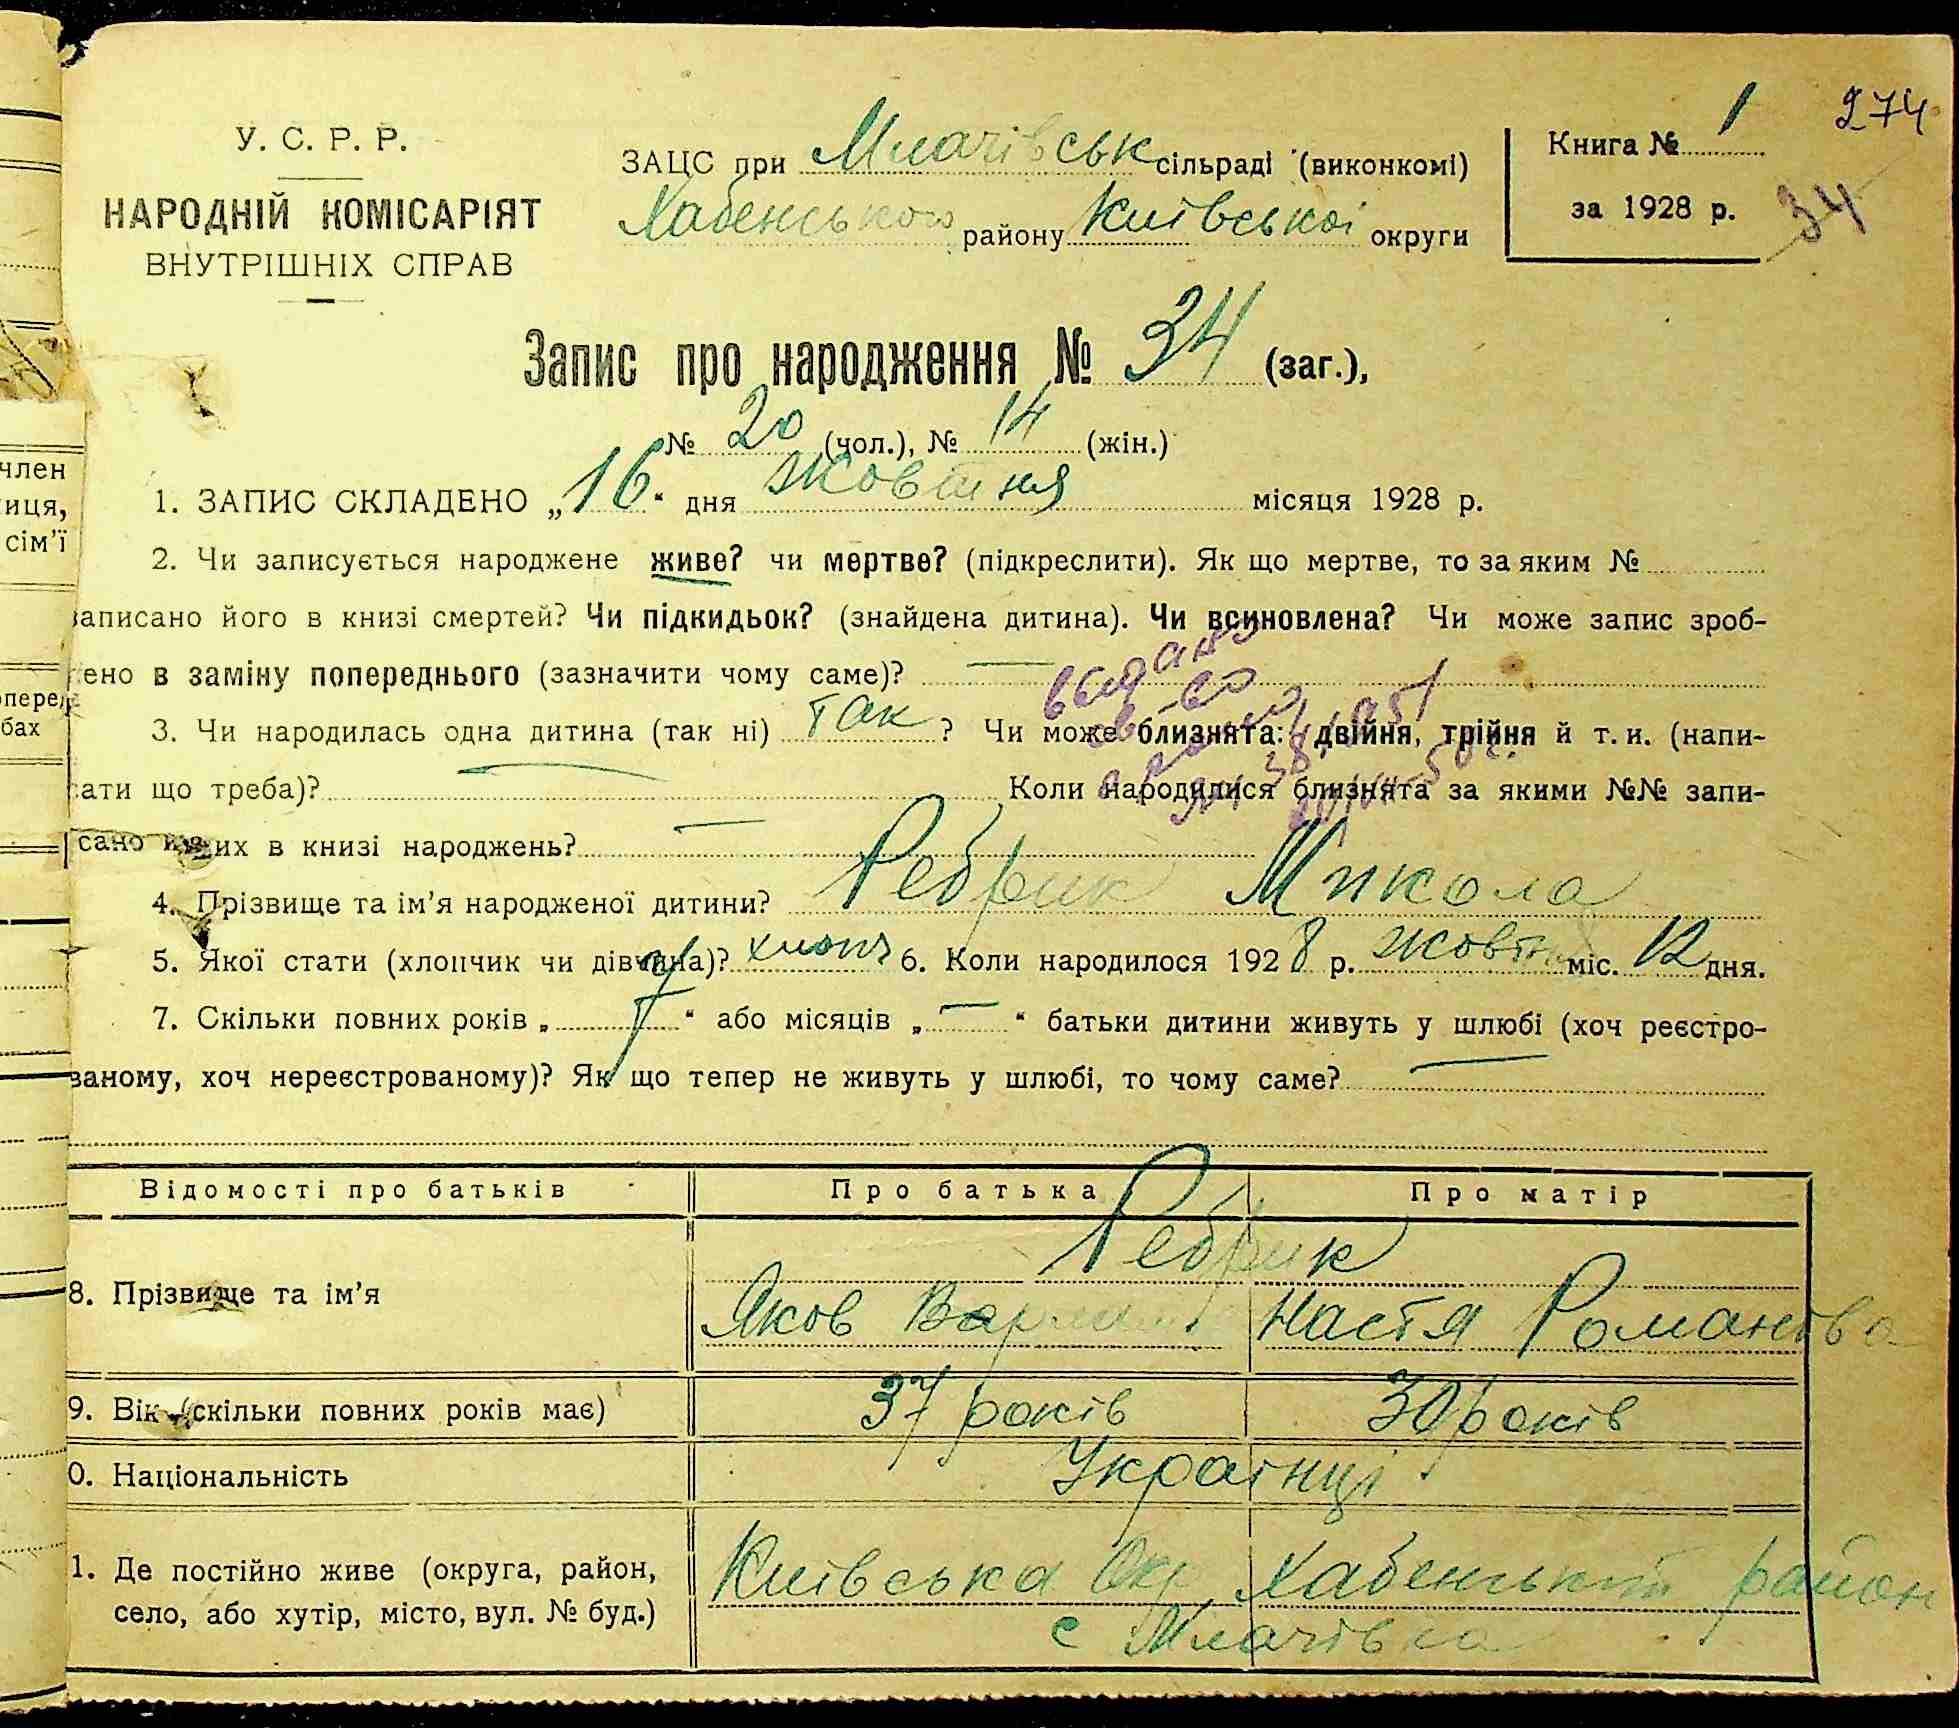 274
У. С. Р. Р.
НАРОДНІЙ КОМІСАРІЯТ
ВНУТРІШНІХ СПРАВ
ЗАЦС при Млачівськ сільраді (виконкомі)
Хабенського району Київської округи
Книга № 1
за 1928 р.
34
Запис про народження № 34 (заг.),
№ 20 (чол.), № 14 (жін.)
1. ЗАПИС СКЛАДЕНО „16“ дня жовтня місяця 1928 р.
2. Чи записується народжене живе? чи мертве? (підкреслити). Як що мертве, то за яким №
записано його в книзі смертей? Чи підкидьок? (знайдена дитина). Чи всиновлена? Чи може запис зроб-
лено в заміну попереднього (зазначити чому саме)? —
выдано
св-во
3. Чи народилась одна дитина (так ні) так ? Чи може близнята: двійня, трійня й т. и. (напи-
сати що треба)? Коли народилися близнята за якими №№ запи-
сано их в книзі народжень? —
4. Прізвище та ім’я народженої дитини? Ребрик Микола
5. Якої стати (хлопчик чи дівчина)? хлопч 6. Коли народилося 1928 р. жовтня міс. 12 дня.
7. Скільки повних років „ “ або місяців „ — “ батьки дитини живуть у шлюбі (хоч реєстро-
ваному, хоч нереєстрованому)? Як що тепер не живуть у шлюбі, то чому саме? —
Відомості про батьків Про батька Про матір
Ребрик
8. Прізвище та ім’я Яков Настя Романовa
9. Вік (скільки повних років має) 37 років 30 років
0. Національність Українці
1. Де постійно живе (округа, район, Київська Окр Хабенський район
село, або хутір, місто, вул. № буд.) с Млачівка
член
иця,
сім’ї
опере
бах